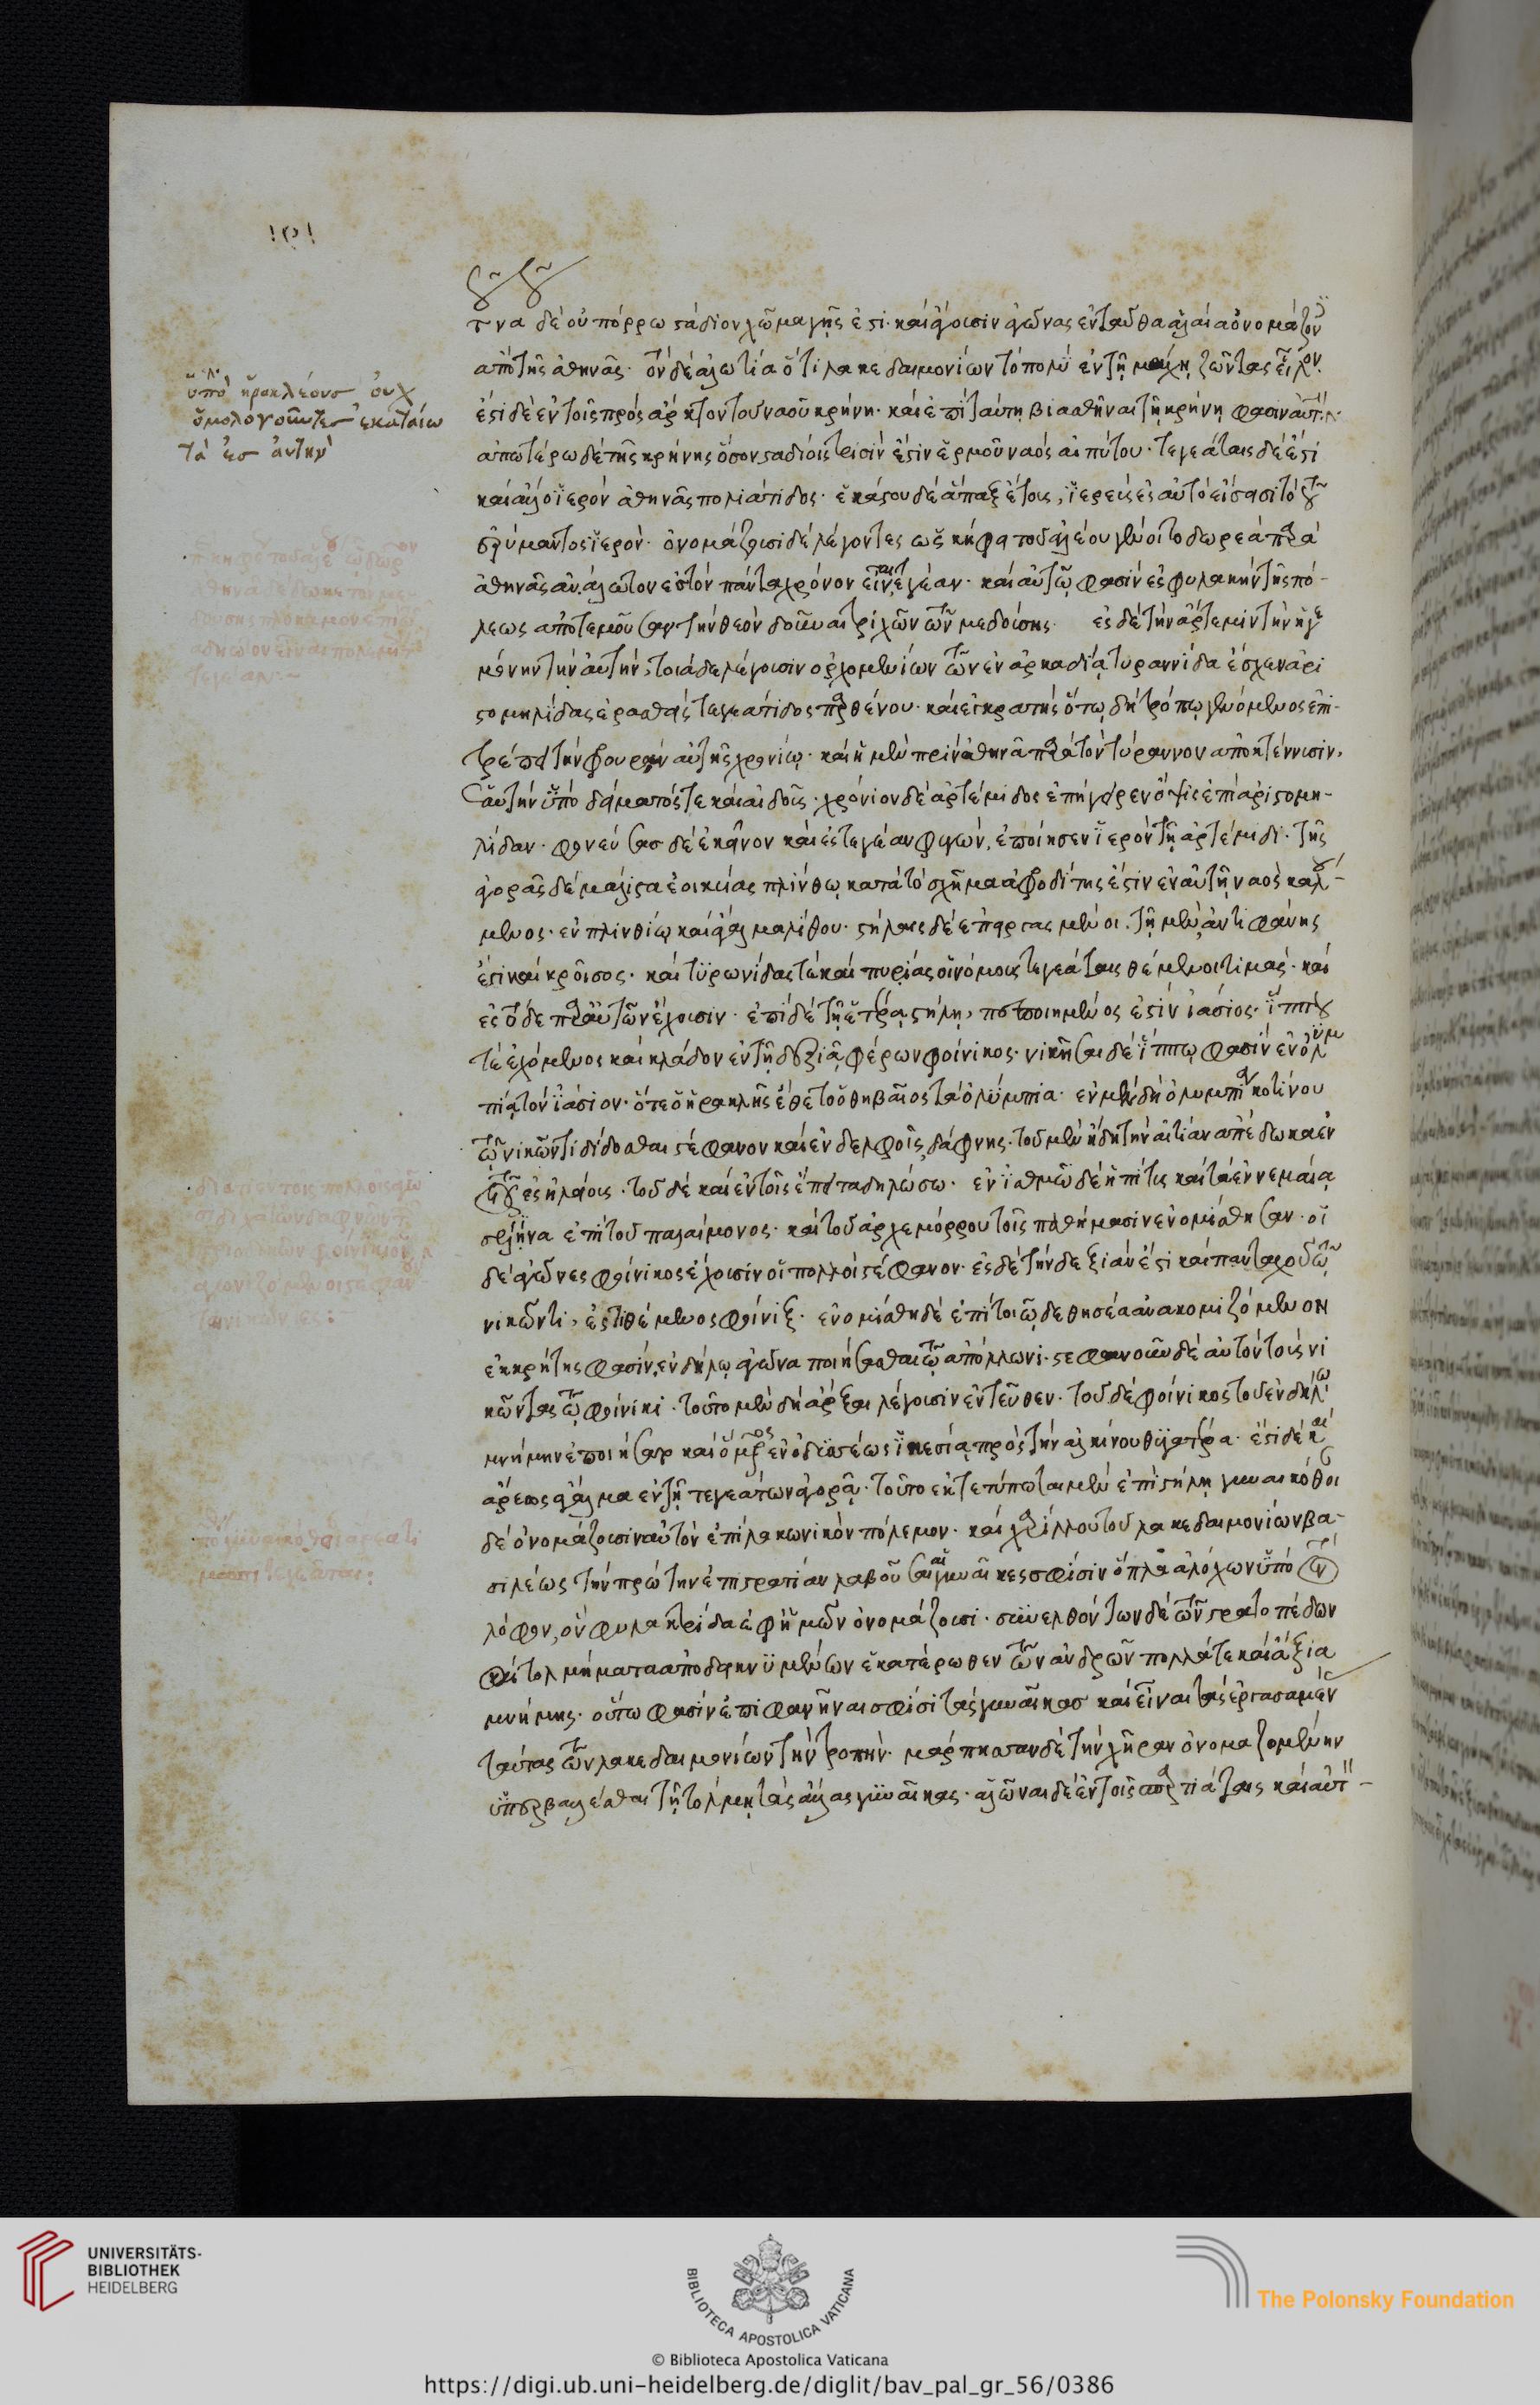 τινα δὲ οὐ πόρρω στάδιον χῶμα γῆς ἐστι· καὶ ἄγουσιν ἀγῶνας ἐνταῦθα ἀλαία ὀνομάζον
ἀπὸ τῆς ἀθηνᾶς· τὸν δὲ ἁλώτια ὅτι λακεδαιμονίων τὸ πολὺ ἐν τῇ μάχῃ ζῶντας εἷλον.
ἔστι δὲ ἐν τοῖς πρὸς ἄρκτον τοῦ ναοῦ κρήνη· καὶ ἐπὶ ταύτῃ βιασθῆναι τῇ κρήνῃ φασὶν αὐτ
ὑπὸ ἡρακλέους οὐχ
ὁμολογοῦντες ἑκαταίω
τὰ ἐς αὐτὴν
ἀπωτέρω δὲ τῆς κρήνης ὅσον σταδίοις τρισίν ἐστιν ἑρμοῦ ναὸς αἰπύτου· τεγεάταις δέ ἐστι
καὶ ἄλλο ἱερὸν ἀθηνᾶς πολιάτιδος· ἑκάστου δὲ ἅπαξ ἔτους, ἱερεὺς ἐς αὐτὸ εἴσεισι τὸ τοῦ
ἐρύματος ἱερὸν· ὀνομάζουσι δὲ λέγοντες ὡς κηφῆ τῷ ἀλέου γένοιτο δωρεὰ παρὰ
ἀθηνᾶς ἀνάλωτον ἐς τὸν πάντα χρόνον εἶναι τεγέαν· καὶ αὐτῷ φασὶν ἐς φυλακὴν τῆς πό-
λεως ἀποτεμοῦσαν τὴν θεὸν δοῦναι τριχῶν τῶν μεδούσης· ἐς δὲ τὴν ἄρτεμιν τὴν ἡγε
μόνην τὴν αὐτὴν, τοιάδε λέγουσιν ὀρχομενίων τῶν ἐν ἀρκαδίᾳ τυραννίδα ἔσχεν ἀρι
στομηλίδας ἐρασθεὶς τεγεάτιδος παρθένου· καὶ ἐγκρατὴς ὅτῳ δὴ τρόπῳ γενόμενος ἐπι-
τρέπει τὴν φρουρὰν αὐτῆς χρονίῳ· καὶ ἡ μὲν πρὶν ἀναχθῆναι παρὰ τὸν τύραννον ἀποκτέννυσιν,
ἑαυτὴν ὑπὸ δείματός τε καὶ αἰδοῦς· χρόνιον δὲ ἀρτέμιδος ἐπήγειρεν ὄψις ἐπὶ ἀριστομη-
λίδαν· φονεύσας δὲ ἐκεῖνον καὶ ἐς τεγέαν φυγών, ἐποίησεν ἱερὸν τῇ ἀρτέμιδι· τῆς
ἀγορᾶς δὲ μάλιστα ἐοικυίας πλίνθῳ κατὰ τὸ σχῆμα ἀφροδίτης ἐστὶν ἐν αὐτῇ ναὸς καλού-
μενος· ἐν πλινθίῳ καὶ ἄγαλμα λίθου· στῆλαις δὲ ἐπειργασμένοι· τῇ μὲν, ἀντιφάνης
ἐστὶ καὶ κροῖσος· καὶ τυρωνίδας τε καὶ πυρίας οἳ νόμους τεγεάταις θέμενοι τιμάς· καὶ
ἐς τόδε παρ' αὐτῶν ἔχουσιν· ἐπὶ δὲ τῇ ἑτέρᾳ στήλῃ, πεποιημένος ἐστὶν ἰάσιος· ἵππου
τε ἐχόμενος καὶ κλάδον ἐν τῇ δεξιᾷ φέρων φοίνικος· νικῆσαι δὲ ἵππῳ φασὶν ἐν ὀλυμ
πίᾳ τὸν ἰάσιον· ὅτε ὁ ἡρακλῆς ἔθετο ὁ θηβαῖος τὰ ὀλύμπια· ἐν μὲν δὴ ὀλυμπίᾳ κοτίνου
τῷ νικῶντι δίδοσθαι στέφανον καὶ ἐν δελφοῖς δάφνης· τοῦ μὲν ἤδη τὴν αἰτίαν ἀπέδωκα ἐν
τοῖς ἐς ἠλείους· τοῦ δὲ καὶ ἐν τοῖς ἔπειτα δηλώσω· ἐν ἰσθμῷ δὲ ἡ πίτυς καὶ τὰ ἐν νεμέᾳ
σέλινα ἐπὶ τοῦ παλαίμονος· καὶ τοῦ ἀρχεμόρρου τοῖς παθήμασιν ἐνομίσθησαν· οἱ
δὲ ἀγῶνες φοίνικος ἔχουσιν οἱ πολλοὶ στέφανον· ἐς δὲ τὴν δεξιάν ἐστι καὶ πανταχοῦ τῷ
νικῶντι, ἐστιθέμενος φοίνιξ· ἐνομίσθη δὲ ἐπὶ τοιῷδε θησέα ἀνακομιζόμενον
ἐκ κρήτης φασὶν, ἐν δήλῳ ἀγῶνα ποιήσασθαι τῷ ἀπόλλωνι· στεφανοῦν δὲ αὐτὸν τοὺς νι
κῶντας τῷ φοίνικι· τοῦτο μὲν δὴ ἄρξαι λέγουσιν ἐντεῦθεν· τοῦ δὲ φοίνικος τοῦ ἐν δήλῳ
μνήμην ἐποιήσατο καὶ ὅμηρος ἐν ὀδυσσέως ἱκεσίᾳ πρὸς τὴν ἀλκίνου θυγατέρα· ἔστι δὲ καὶ
ἄρεως ἄγαλμα ἐν τῇ τεγεατῶν ἀγορᾷ· τοῦτο ἐκτετύπωται μὲν ἐπὶ στήλῃ γυναικοθοι
δὲ ὀνομάζουσιν αὐτὸν ἐπὶ λακωνικὸν πόλεμον· καὶ χαρίλλου τοῦ λακεδαιμονίων βα-
σιλέως τὴν πρώτην ἐπιστρατίαν λαβοῦσαι αἱ γυναῖκές σφίσιν ὅπλα ἐλόχων ὑπὸ τὸν
λόφον, ὃν φυλακτρίδα ἐφ' ἡμῶν ὀνομάζουσι· συνελθόντων δὲ τῶν στρατοπέδων
καὶ τολμήματα ἀποδεικνυμένων ἑκατέρωθεν τῶν ἀνδρῶν πολλά τε καὶ ἄξια
μνήμης· οὕτω φασὶν ἐπιφανῆναι σφίσι τὰς γυναῖκας καὶ εἶναι τὰς ἐργασαμέν
ταύτας τῶν λακεδαιμονίων τὴν τροπήν· μάρπησσαν δὲ τὴν χήραν ὀνομαζομένην
ὑπερβαλέσθαι τῇ τόλμῃ τὰς ἄλλας γυναῖκας· ἁλῶναι δὲ ἐν τοῖς σπαρτιάταις καὶ αὐτ-
UNIVERSITÄTS-
BIBLIOTHEK
HEIDELBERG
BIBLIOTECA APOSTOLICA VATICANA
The Polonsky Foundation
© Biblioteca Apostolica Vaticana
https://digi.ub.uni-heidelberg.de/diglit/bav_pal_gr_56/0386